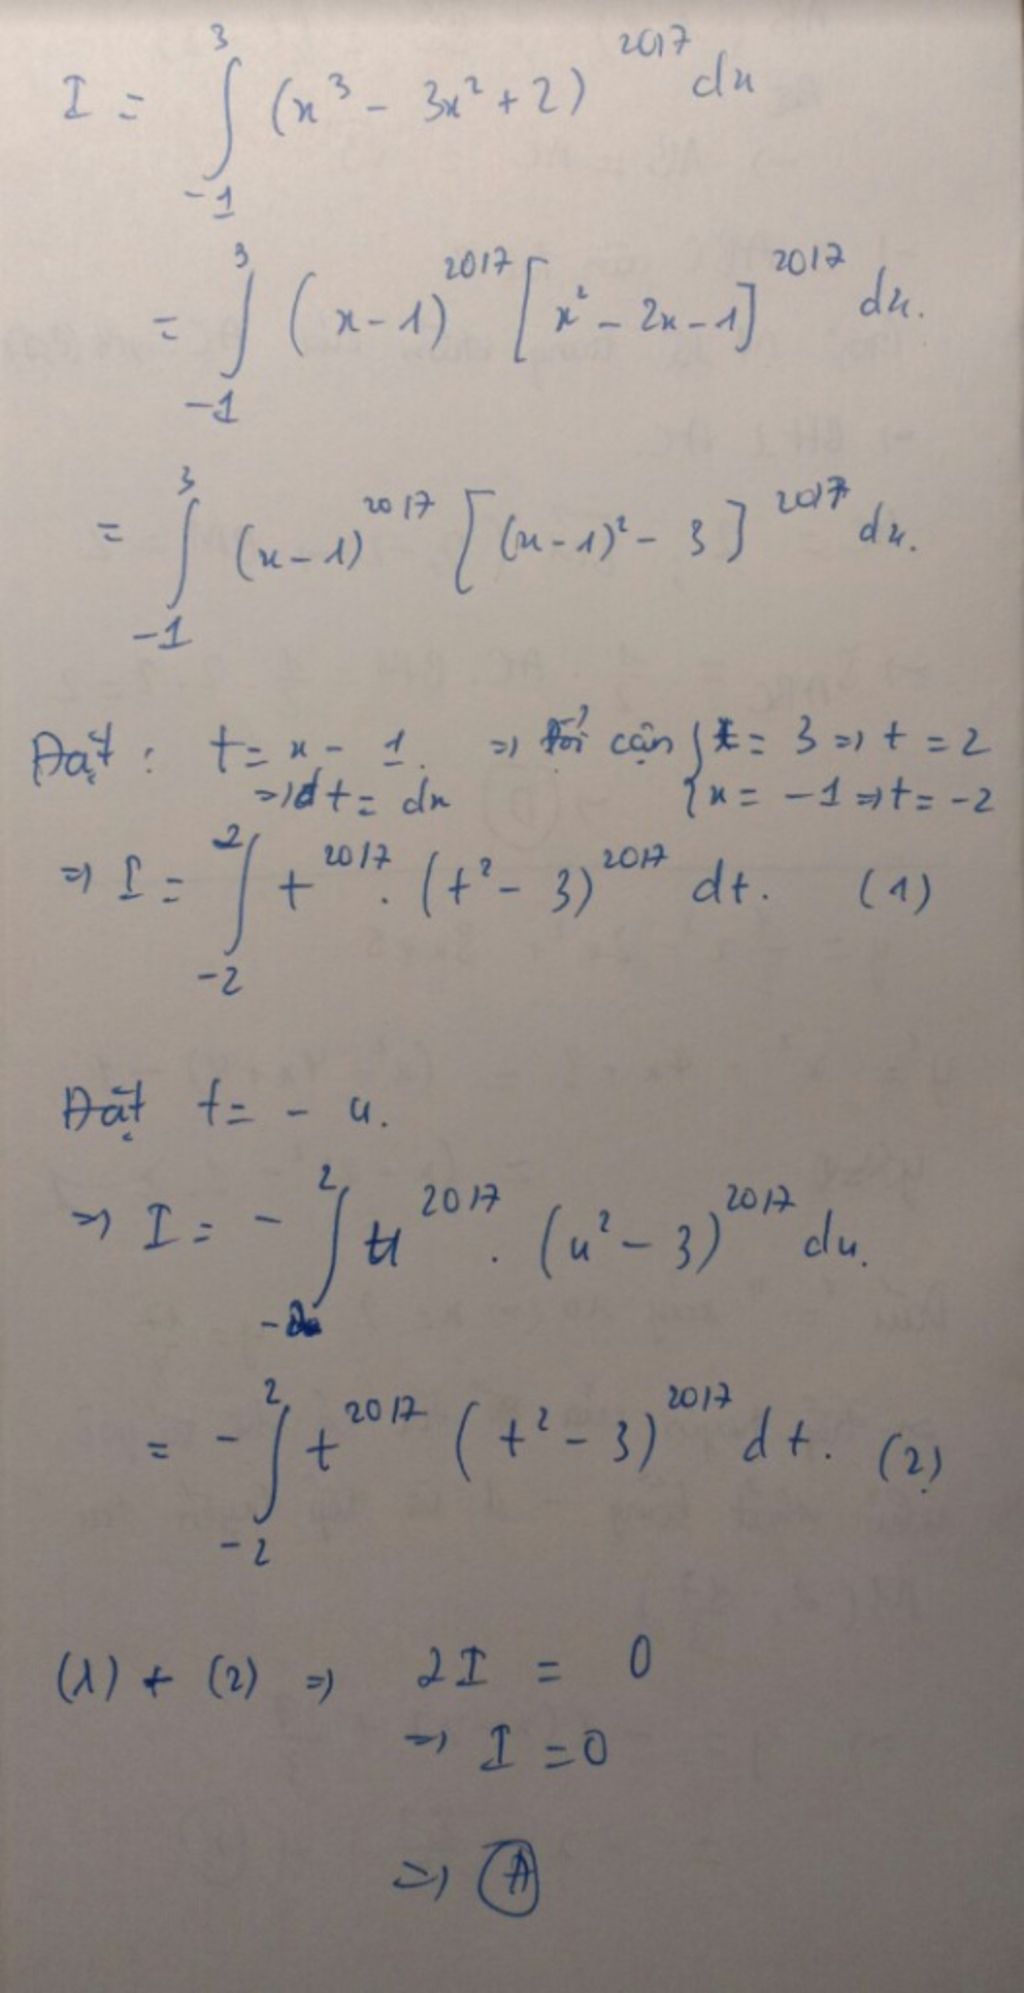 I = ∫_{-1}^{3} (x³ - 3x² + 2)^{2017} dx
= ∫_{-1}^{3} (x-1)^{2017} [x² - 2x - 1]^{2017} dx.
= ∫_{-1}^{3} (x-1)^{2017} [(x-1)² - 3]^{2017} dx.
Đặt : t = x - 1. => đổi cận { x = 3 => t = 2
=> dt = dx { x = -1 => t = -2
=> I = ∫_{-2}^{2} t^{2017} . (t² - 3)^{2017} dt. (1)
Đặt t = - u.
=> I = - ∫_{-2}^{2} u^{2017} . (u² - 3)^{2017} du.
= - ∫_{-2}^{2} t^{2017} (t² - 3)^{2017} dt. (2)
(1) + (2) => 2I = 0
=> I = 0
=> A